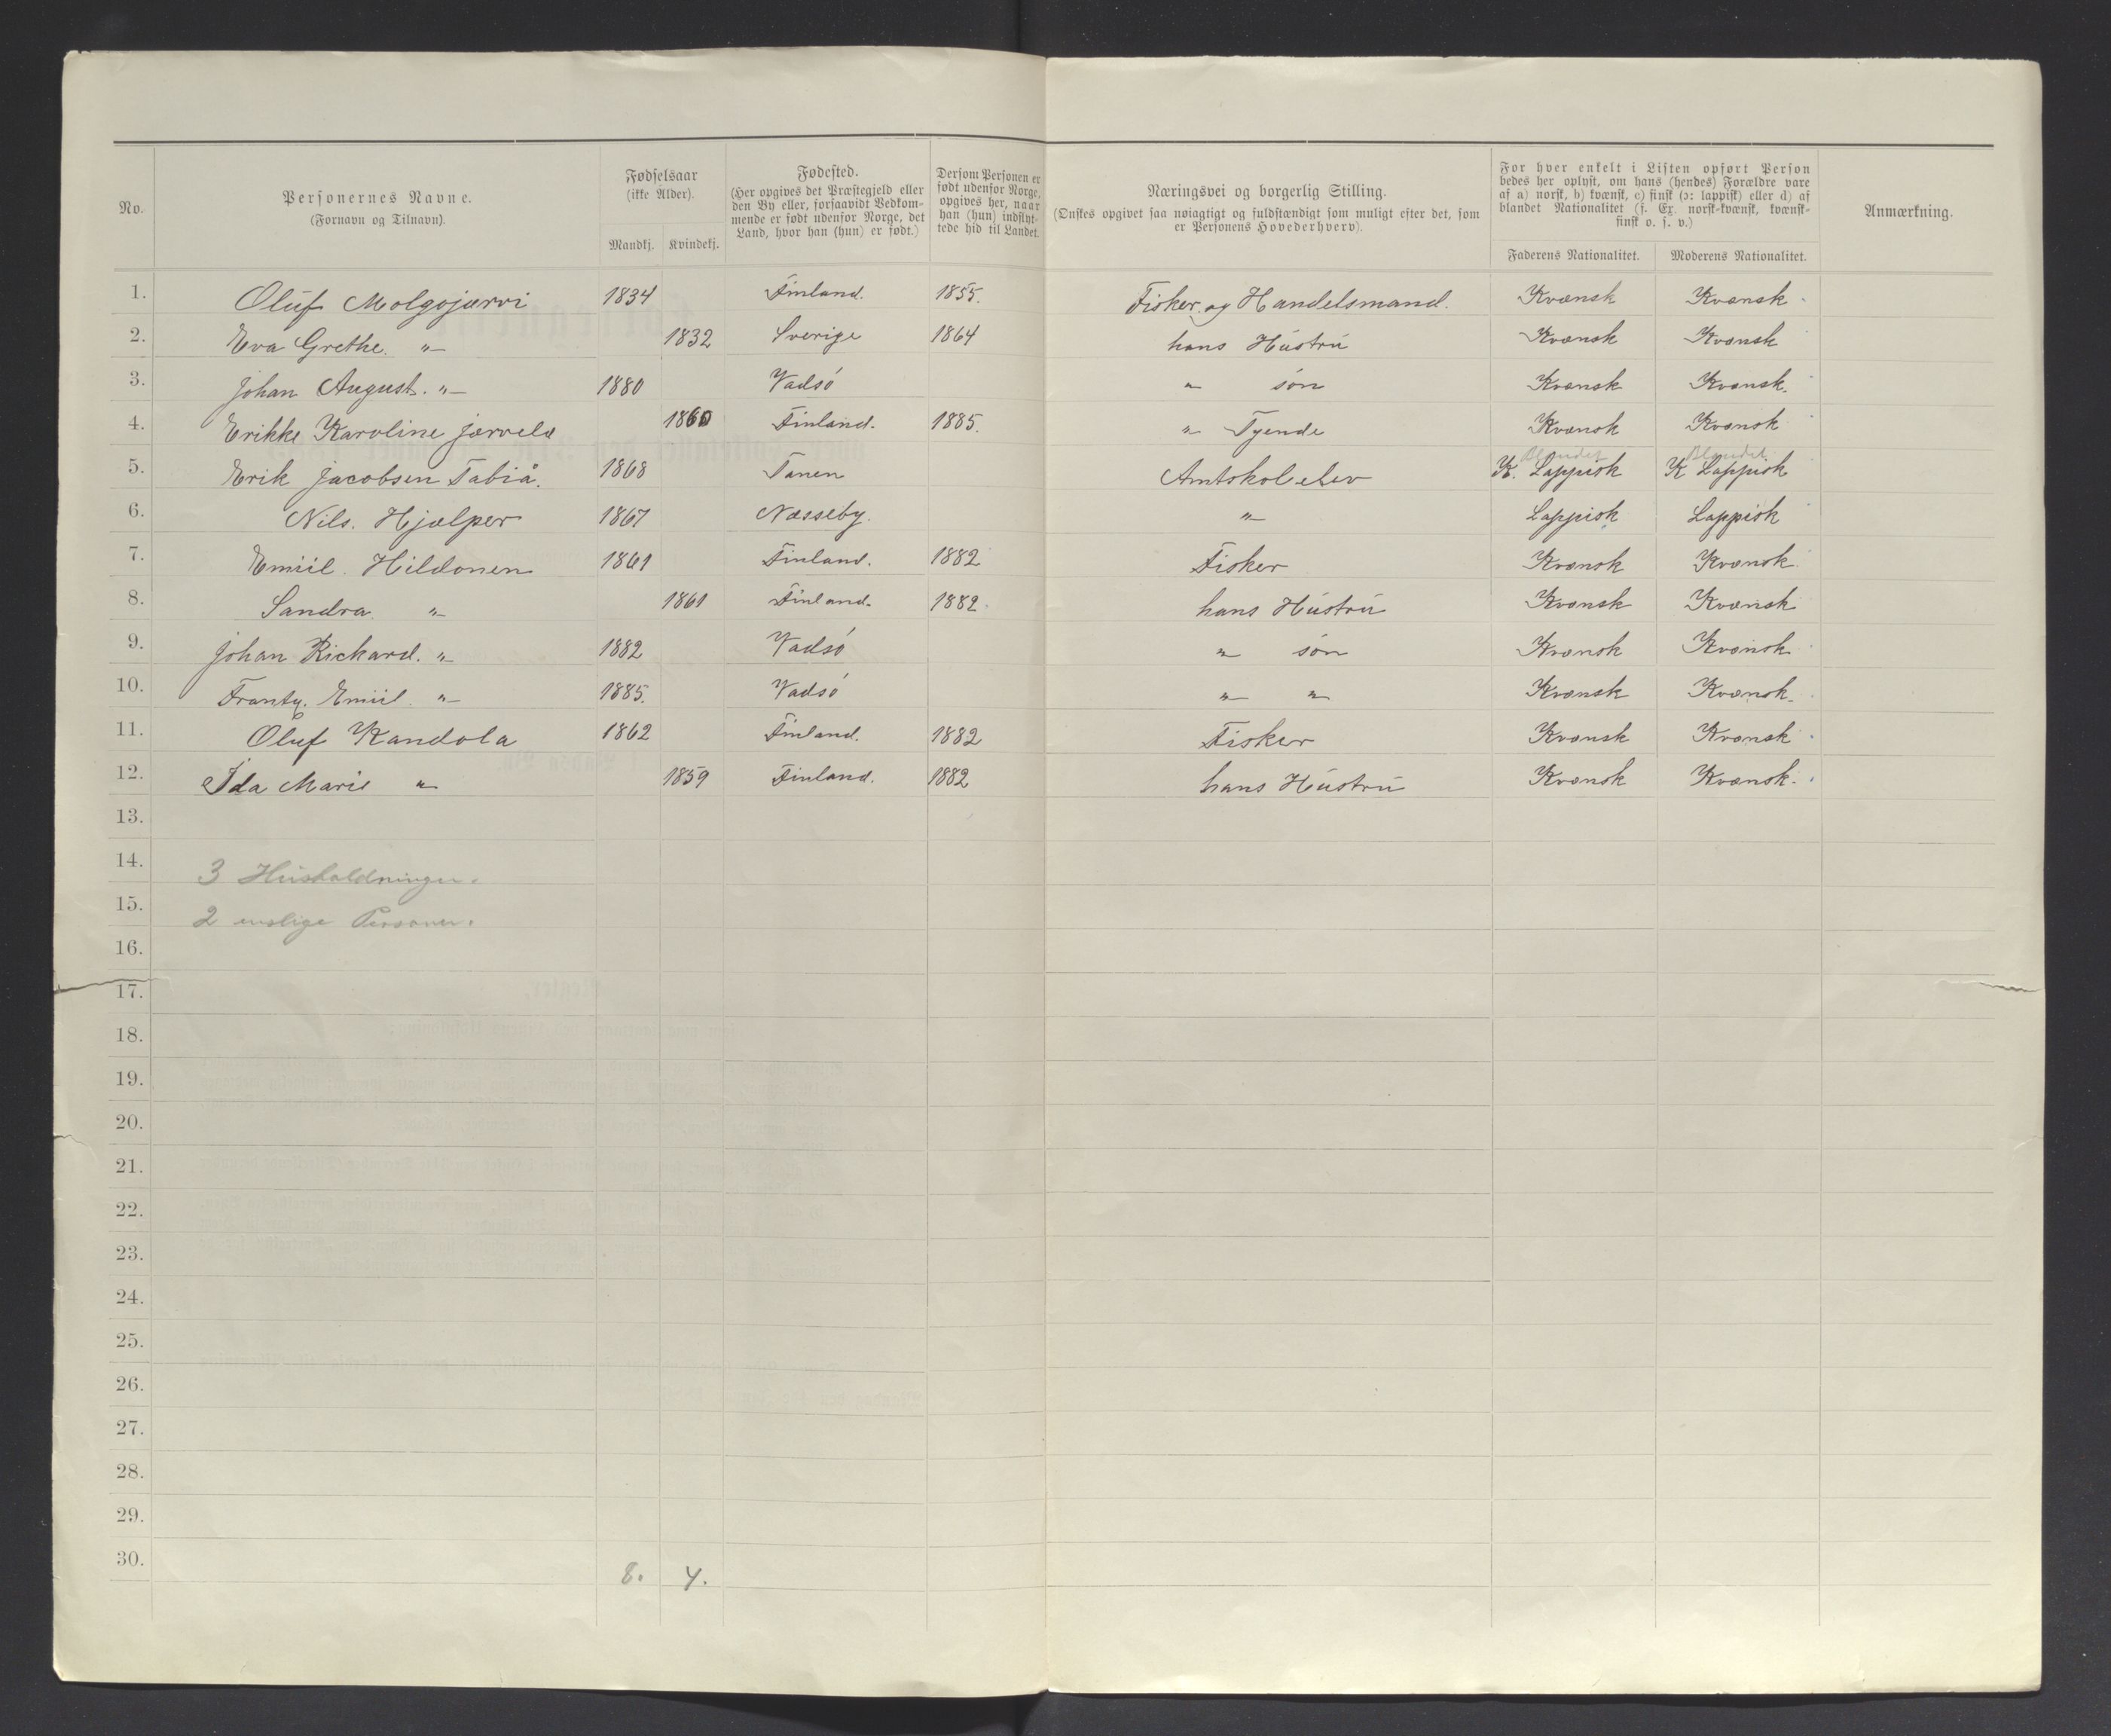 No.
Personernes Navne.
(Fornavn og Tilnavn).
Fødselsaar
(ikke Alder).
Mandkj. Kvindekj.
Fødested.
(Her opgives det Præstegjeld eller
den By eller, forsaavidt Vedkom-
mende er født udenfor Norge, det
Land, hvor han (hun) er født.)
Dersom Personen er
født udenfor Norge,
opgives her, naar
han (hun) indflyt-
tede hid til Landet.
Næringsvei og borgerlig Stilling.
(Ønskes opgivet saa nøiagtigt og fuldstændigt som muligt efter det, som
er Personens Hovederhverv).
For hver enkelt i Listen opført Person
bedes her oplyst, om hans (hendes) Forældre vare
af a) norsk, b) kvænsk, c) finsk (ɔ: lappisk) eller d) af
blandet Nationalitet (f. Ex. norsk-kvænsk, kvænsk-
finsk o. s. v.)
Faderens Nationalitet. Moderens Nationalitet.
Anmærkning.
1. Oluf Molgojærvi 1834 Finland. 1855. Fisker og Handelsmand. Kvænsk Kvænsk
2. Eva Grethe. "- 1832 Sverige 1864 hans Hustru Kvænsk Kvænsk
3. Johan August. "- 1880 Vadsø "- søn Kvænsk Kvænsk.
4. Erikke Karoline Jærvelæ 1860 Finland. 1885. " Tyende Kvænsk Kvænsk
Blandet Blandet
5. Erik Jacobsen Tabiå. 1868 Tanen Amtskolelev K. Lappisk K Lappisk
6. Nils. Hjælper 1867 Næsseby. "- Lappisk Lappisk
7. Emiil. Hildonen 1861 Finland. 1882 Fisker Kvænsk Kvænsk
8. Sandra "- 1861 Finland. 1882. hans Hustru Kvænsk Kvænsk
9. Johan Rickard. "- 1882 Vadsø "- søn Kvænsk Kvænsk
10. Frantz. Emiil. "- 1885. Vadsø "- "- Kvænsk Kvænsk.
11. Oluf Kandola 1862 Finland. 1882 Fisker Kvænsk Kvænsk
12. Ida Marie "- 1859 Finland. 1882 hans Hustru Kvænsk Kvænsk.
13.
14. 3 Husholdninger.
15. 2 enslige Personer.
16.
17.
18.
19.
20.
21.
22.
23.
24.
25.
26.
27.
28.
29.
30. 8. 4.